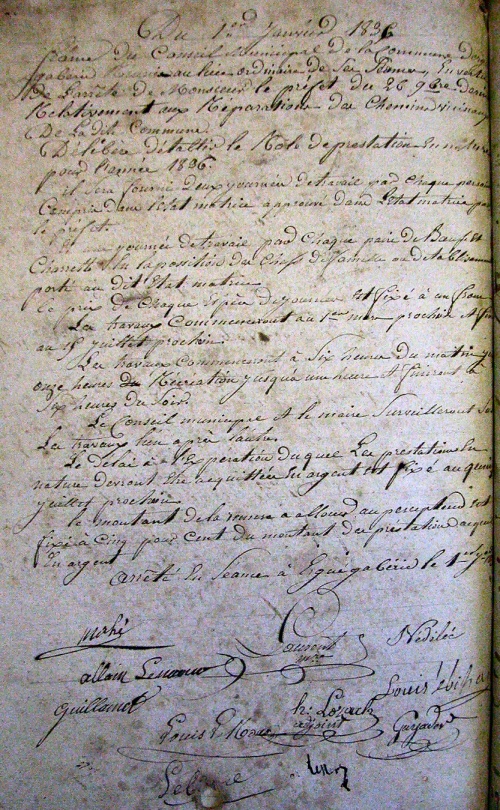 Du 1er janvier 1836
Séance du Conseil municipal de la Commune
gabéric Réunis au lieu ordinaire de Ses Séances, En vertu
De L'arrêté de Monsieur le préfet du 26 9bre dernier
Relativement aux Réparations des Chemins vicinaux
De La dite Commune
Délibère d'établir le Role de prestation En nature
pour l'année 1836.
il Sera fourni deux journées de travail par Chaque
Compris dans l'état matrice approuvé dans l'état matrice par
le préfet.
Et une journée de travail par Chaque paire de Bœufs Et
Charrette En la possession du Chef de famille ou d'établissement
porté au dit État matrice
le prix de Chaque Espèce de journée Est fixé à un franc
Les travaux Commenceront au 1er mars prochain Et
au 15 juillet prochain.
Les travaux Commenceront à Six heures du matin
onze heures du Récréation jusqu'à une heure Et finiront à
Six heures du Soir.
Le Conseil municipal Et le maire Surveilleront
Les travaux l'un après l'autre.
Le délai à l'Expiration duquel Les prestations En
nature devront Etre acquittées En argent Est fixé au quinze
juillet prochain
le montant de la remise à allouer au percepteur est
fixé à Cinq pour Cent du montant des prestations acquittées
En argent
arrêté En Séance à Ergué gabéric le 1er
mahé
allain Lenaour
Guillamet
Louis
h. Lozach
adjoint
Gueyader